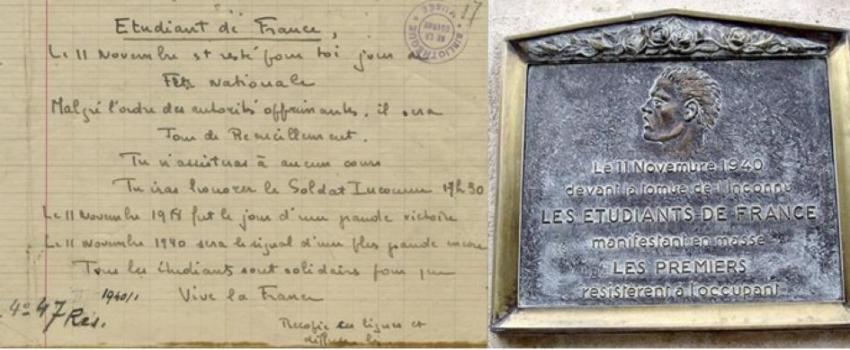 Etudiant de France,
Le 11 Novembre est resté pour toi jour de
Fête nationale
Malgré l'ordre des autorités opprimantes, il sera
Jour de Recueillement.
Tu n'assisteras à aucun cours
Tu iras honorer le Soldat Inconnu 17h30
Le 11 Novembre 1918 fut le jour d'une grande victoire
Le 11 Novembre 1940 sera le signal d'une plus grande encore
Tous les étudiants sont solidaires pour que
Vive la France
Recopie ces lignes et
diffuse les
1940/1
4° 47 Res.
BIBLIOTHÈQUE MUSÉE
DE LA GUERRE
Le 11 Novembre 1940
devant la tombe de l'inconnu
LES ETUDIANTS DE FRANCE
manifestant en masse
LES PREMIERS
resistèrent à l'occupant